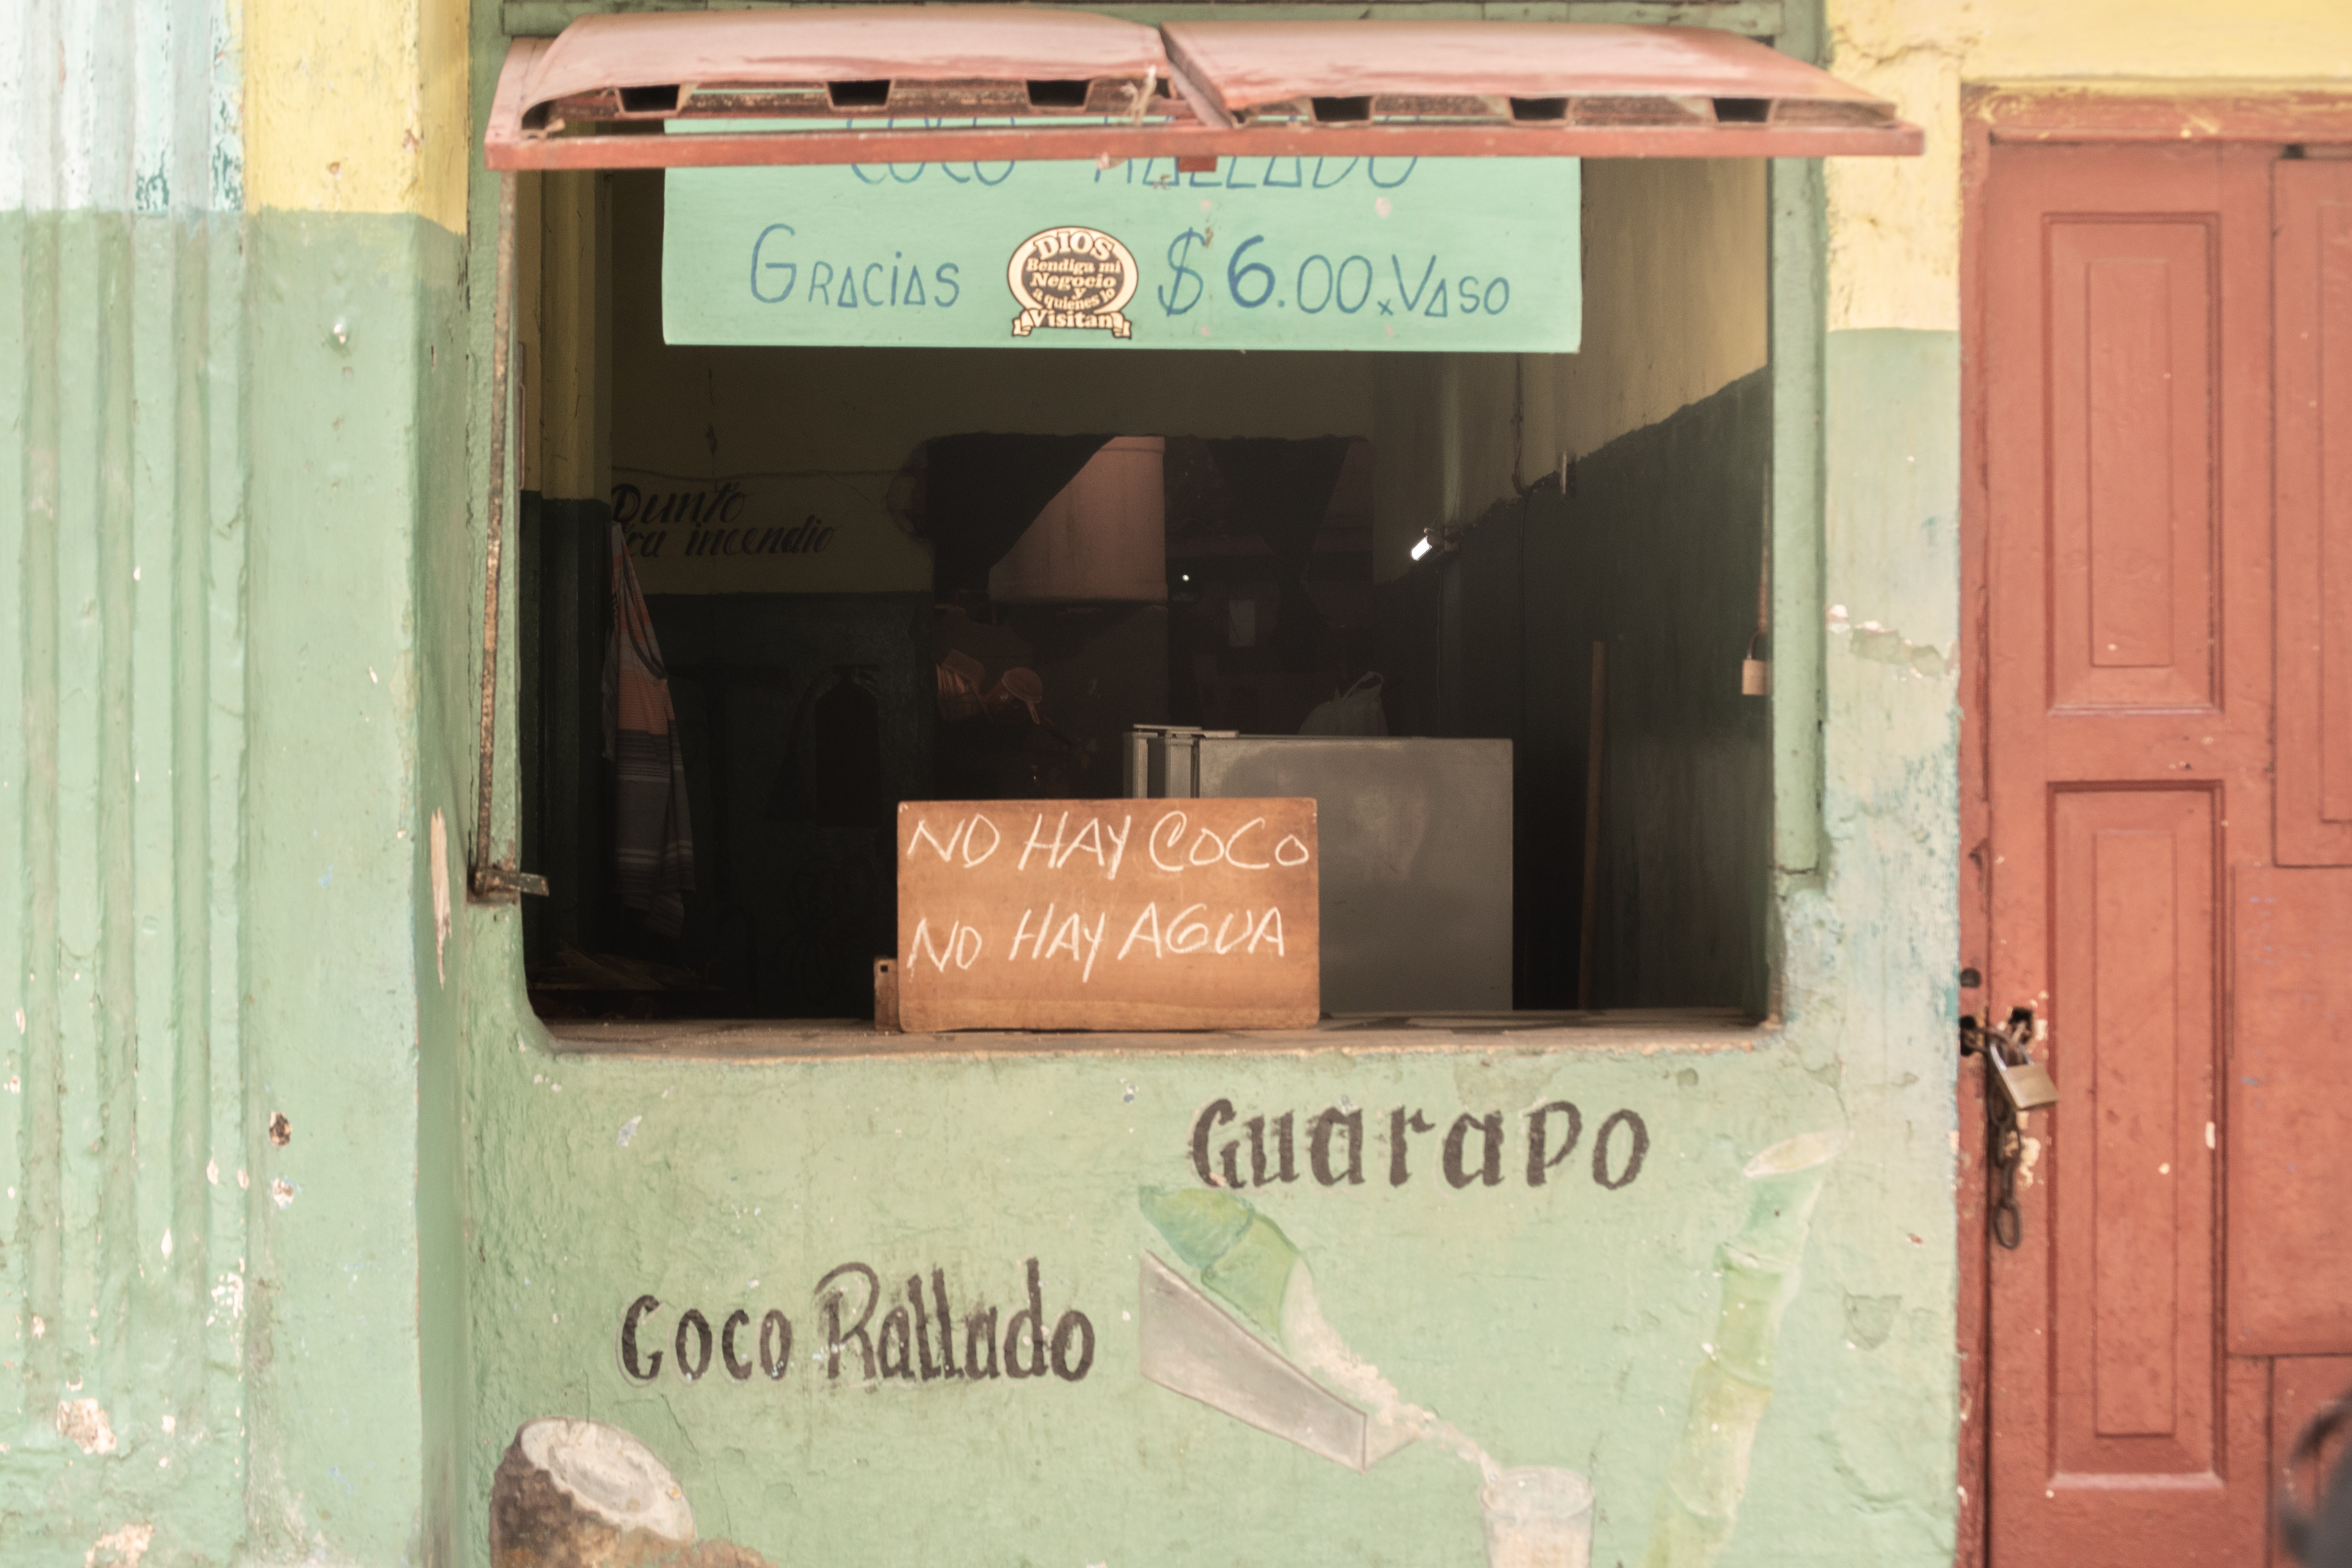 COCO RALLADO
GRACIAS
DIOS
Bendiga mi
Negocio
y
a quienes lo
Visitan
$6.00xVASO
Punto
incendio
NO HAY COCO
NO HAY AGUA
Guarapo
Coco Rallado